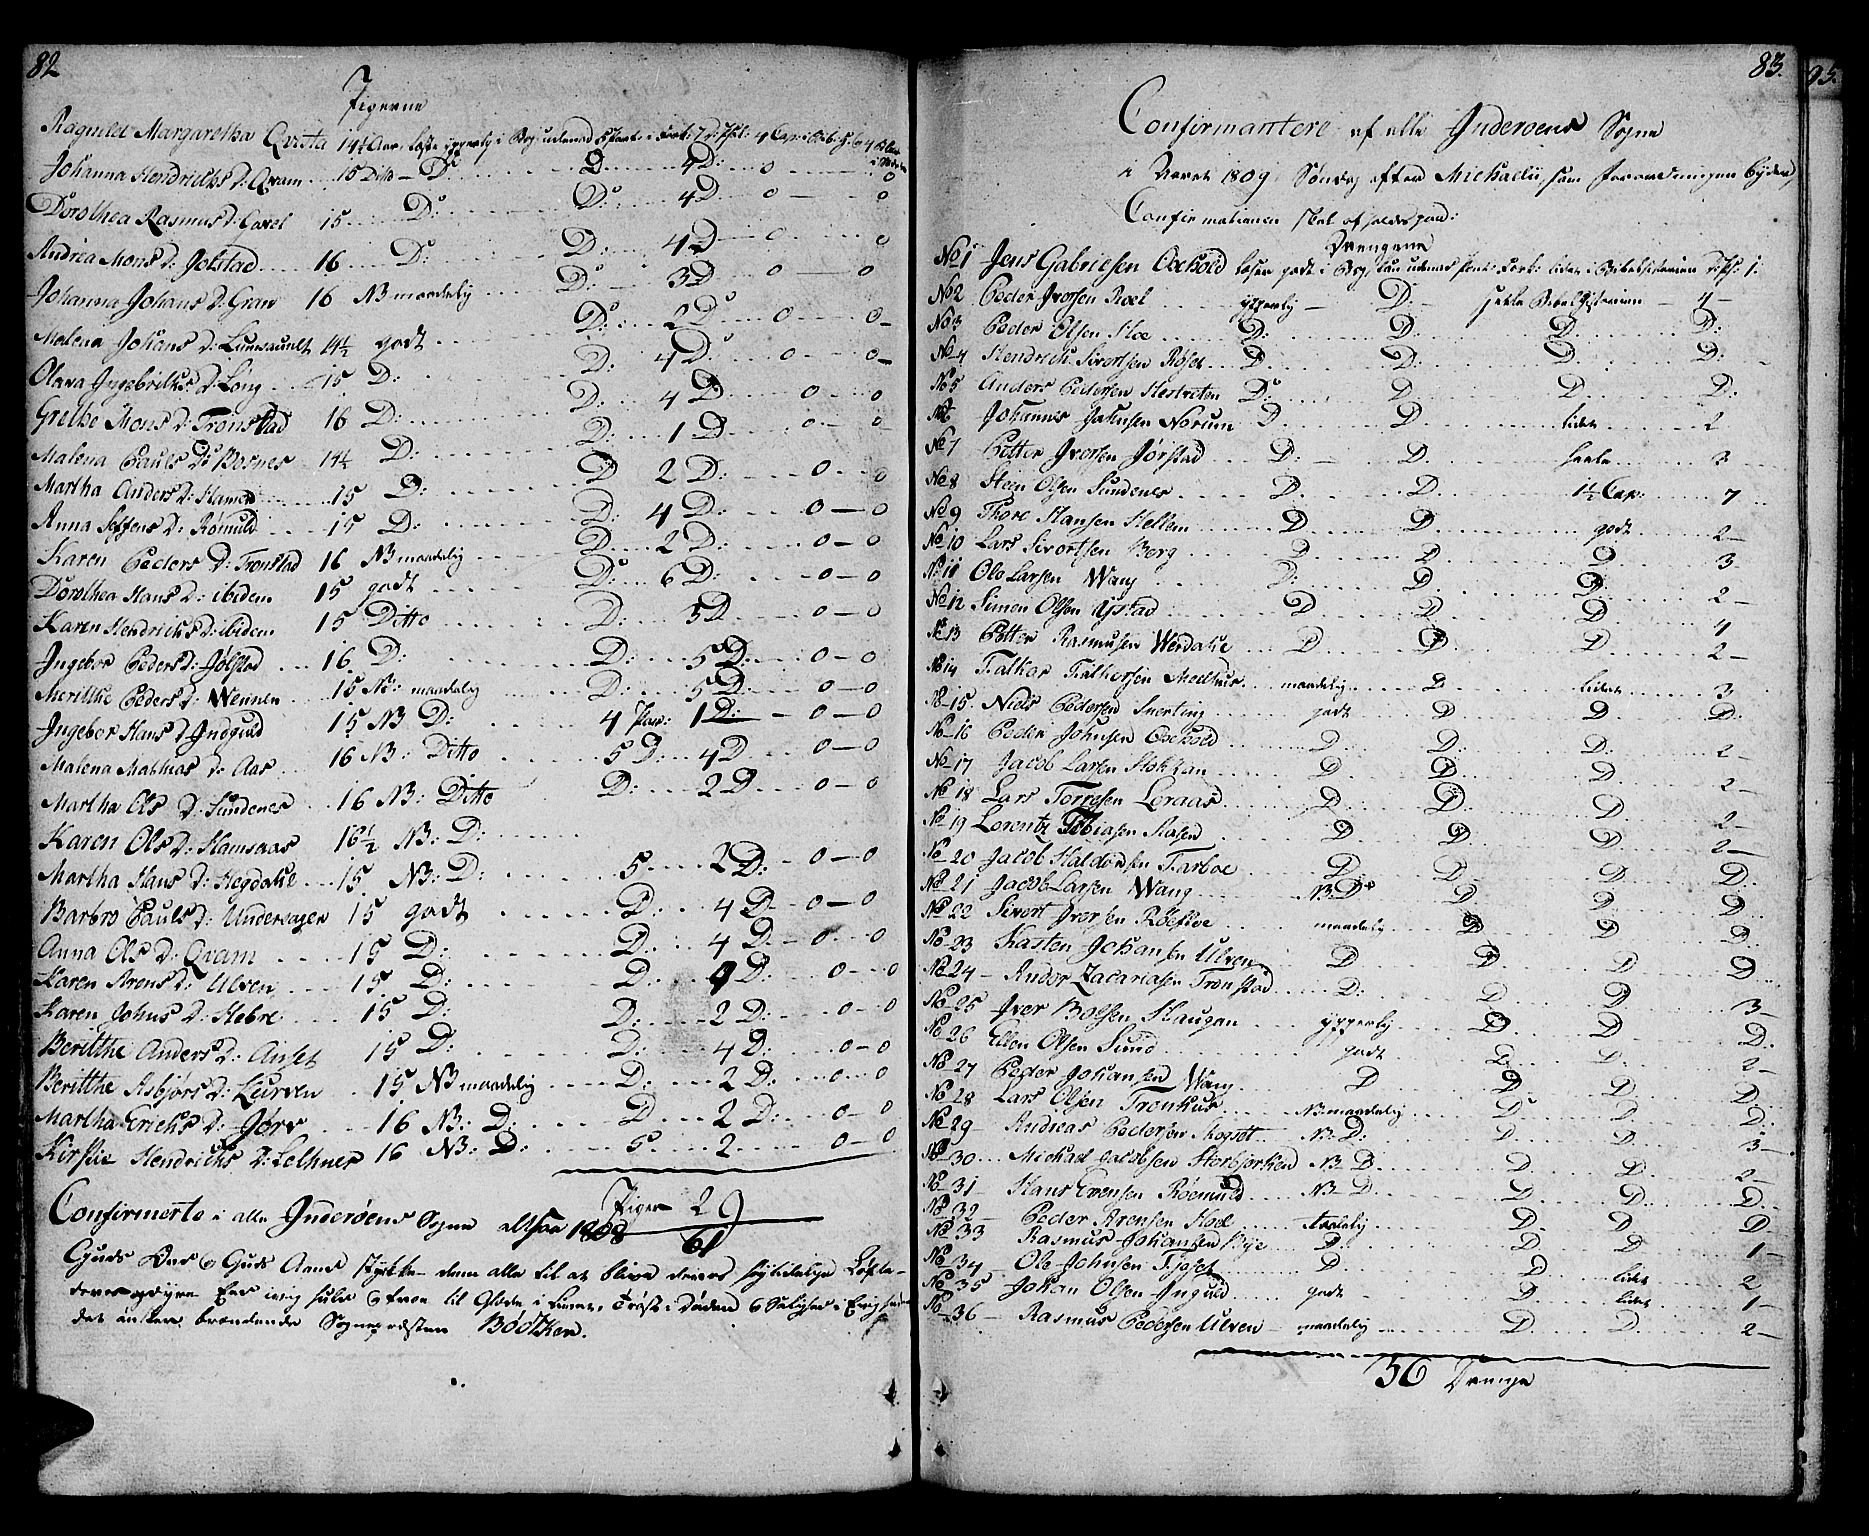 82
Pigerne
Ragnild Margaretha Qvista 14½ Aar, læste ypperlig i Bog, udenad
Johanna Hendrichs D: Qvam 15 Ditto - D: D: 4 D: 0 0
Dorothea Rasmus D: Caxel 15 D: D: 4 D 0 0
Andrea Mons D: Jolstad 16 D: D: 4 D 0 0
Johanna Johans D: Gran 16 NB maadelig D: 3 D 0 0
Malena Johans D: 14½ godt D: 2 D: 0 0
Olava Ingebricts D: Löng 15 D: D: 4 D: 0 0
Grethe Mons D: Tronstad 16 D: D: 4 D 0 0
Malena Pauls D: Bosnes 14½ D: D: 1 D 0 0
Martha Anders D: Hamen 15 D: D 2 D: 0 0
Anna Steffens D: Römuld 15 D: D: 4 D: 0 0
Karen Peders D: Tronstad 16 NB maadelig D: 2 D: 0 0
Dorothea Hans D: ibidem 15 godt D: 6 D: 0 0
Karen Hendrichs D: ibidem 15 Ditto D: 5 D 0 0
Ingebor Peders D: Jölstad 16 D: D: 5 D: 0 0
Merithe Peders D: Wennen 15 NB: maadelig D: 5 D: 0 0
Ingebor Hans D: Indguld 15 NB D: 4 Par: 1 D: 0 0
Malena Mathias D: Aas 16 NB: Ditto 5 D: 4 D 0 0
Martha Ols D: Sundenes 16 NB: Ditto D: 2 D 0 0
Karen Ols D: Hamsaas 16½ NB: D:
Martha Hans D: Hegdahl 15 NB: D: 5 2 D: 0 0
Barbro Pauls D: Undersager 15 godt D: 4 D 0 0
Anna Ols D: Qvam 15 D: D: 4 D 0 0
Karen Arens D: Ulven 15 D: D: D: 0 0
Karen Johns D: Hebre 15 D: D: 2 D: 0 0
Berithe Anders D: Anset 15 D: D: 4 D: 0 0
Berithe Asbjörs D: Leirven 15 NB maadelig D: 2 D: 0 0
Martha Erichs D: Jörv 16 NB: D: D 2 D: 0 0
Kirstie Hendrichs D: Lethner 16 NB: D: 5 2 0 0
Piger 29
Confirmerte i alle Inderöens Sogne altsaa 1808 61
Guds Ord & Guds Aand styrke dem alle til at blive deres höitidelige Löfte
deres troe til Glæde i Livet, Tröst i Döden & Salighed i Evighed
det önsker brændende Sognepræsten Bodtker.
83.
Confirmantere af alle Inderoens Sogne
i Aaret 1809 Söndag efter Michaelii, som Forordningen byder,
Confirmationen skal afholdes paa:
Drengene
No 1 Jens Gabrielsen Oxhold læser godt i Bog, kan udenad lidet i Bibelhistorien
No 2 Peder Iversen Roel ypperlig D: heele Bibelhistorien 4
No 3 Peder Olsen Moe D: D: D: D:
No 4 Hendrich Sivertsen Röset D: D: D: D:
No 5 Anders Pedersen Hestveten D: D D. D:
No 6 Johannes Johnsen Norum D D lidet 2
No 7 Petter Iversen Jörstad D: D. heele 3
No 8 Steen Olsen Sundenes D: D: 1½ Cap: 7
No 9 Thore Hansen Hellem D D godt 2
No 10 Lars Sivertsen Berg D D D 3
No 11 Ole Larsen Wang D: D D: 2
No 12 Simon Olsen Ystad D D D: 4
No 13 Petter Rasmusen Werdahl D D D 2
No 14 Falkor Falkorsen Melhus maadelig D lidet 3
No 15 Niels Pedersen Snerting godt D D. D:
No 16 Peder Johnsen Oxhold D D: D: 2
No 17 Jacob Larsen Stokkan D D D 2
No 18 Lars Torresen Loraas D D: D: 2
No 19 Lorentz Tobiasen Aasen D D D: 2
No 20 Jacob Haldorsen Tarboe D D: D D:
No 21 Jacob Larsen Wang NB D: D D D
No 22 Sivert Iversen Röeskoe maadelig D D D
No 23 Karsten Johansen Ulven D D D D
No 24 Andor Zacariasen Tronstad D: D D 3
No 25 Iver Boesen Haugan ypperlig D D D:
No 26 Ellen Olsen Sund godt D: D: 2
No 27 Peder Johansen Wang D D D D:
No 28 Lars Olsen Tronhus NB maadelig D D D:
No 29 Andreas Pedersen Mogsett NB D: D D. 3
No 30 Michael Jacobsen Storbjorken NB D D D 2
No 31 Hans Evensen Röemuld NB D D D: D
No 32 Peder Arensen Hoel taalelig D D D
No 33 Rasmus Johansen Bye D: D D 1
No 34 Ole Johnsen Tjöset D D lidet 2
No 35 Johan Olsen Inguld godt D lidet 1
No 36 Rasmus Pedersen Ulven maadelig D D 2
36 Drenge